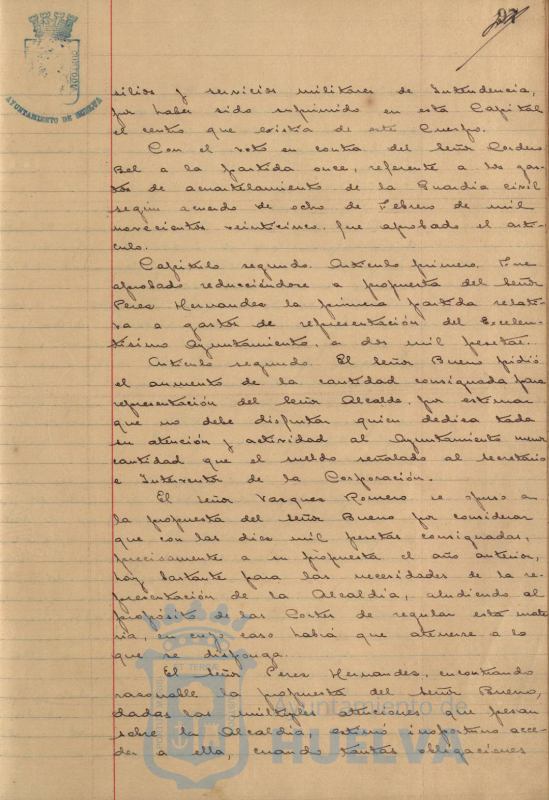 97
AYUNTAMIENTO DE HUELVA
silios y servicios militares de Intendencia,
por haber sido suprimido en esta Capital
el centro que existia de este Cuerpo.
Con el voto en contra del Señor Cordero
Bel a la partida once, referente a los gas-
tos de acuartelamiento de la Guardia civil
segun acuerdo de ocho de Febrero de mil
novecientos veinticinco, fue aprobado el arti-
culo.
Capitulo segundo. Articulo primero. Fue
aprobado reduciéndose a propuesta del Señor
Perez Hernandez la primera partida relati-
va a gastos de representación del Excelen-
tisimo Ayuntamiento, a dos mil pesetas.
Articulo segundo. El Señor Bueno pidió
el aumento de la cantidad consignada para
representación del Señor Alcalde, por estimar
que no debe disfrutar quien dedica toda
su atención y actividad al Ayuntamiento menor
cantidad que el sueldo señalado al Secretario
e Interventor de la Corporación.
El Señor Vazquez Romero se opuso a
la propuesta del Señor Bueno por considerar
que con las diez mil pesetas consignadas,
precisamente a su propuesta el año anterior,
hay bastante para las necesidades de la re-
presentación de la Alcaldia, aludiendo al
propósito de las Cortes de regular esta mate
ria, en cuyo caso habrá que atenerse a lo
que se disponga.
El Señor Perez Hernandez, encontrando
razonable la propuesta del Señor Bueno,
dadas las múltiples atenciones que pesan
sobre la Alcaldia, estimó inoportuno acce-
der a ella, cuando tantas obligaciones
Ayuntamiento de
HUELVA